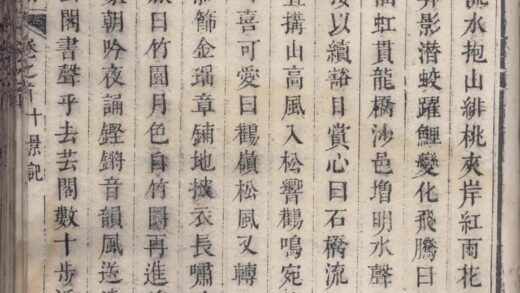 流水抱山緋桃夾岸紅雨花
影潛蛟躍鯉變化飛騰曰
虹貫龍橋沙邑增明水聲
接以續豁目賞心曰石橋流
搆山高風入松響鶴鳴宛
喜可愛曰鶴嶺松風又轉
篩金瑤章鋪地披衣長嘯
曰竹園月色自竹園再進
朝吟夜誦鏗鏘音韻風送
閣書聲乎去芸閣數十步
卷之首十景記